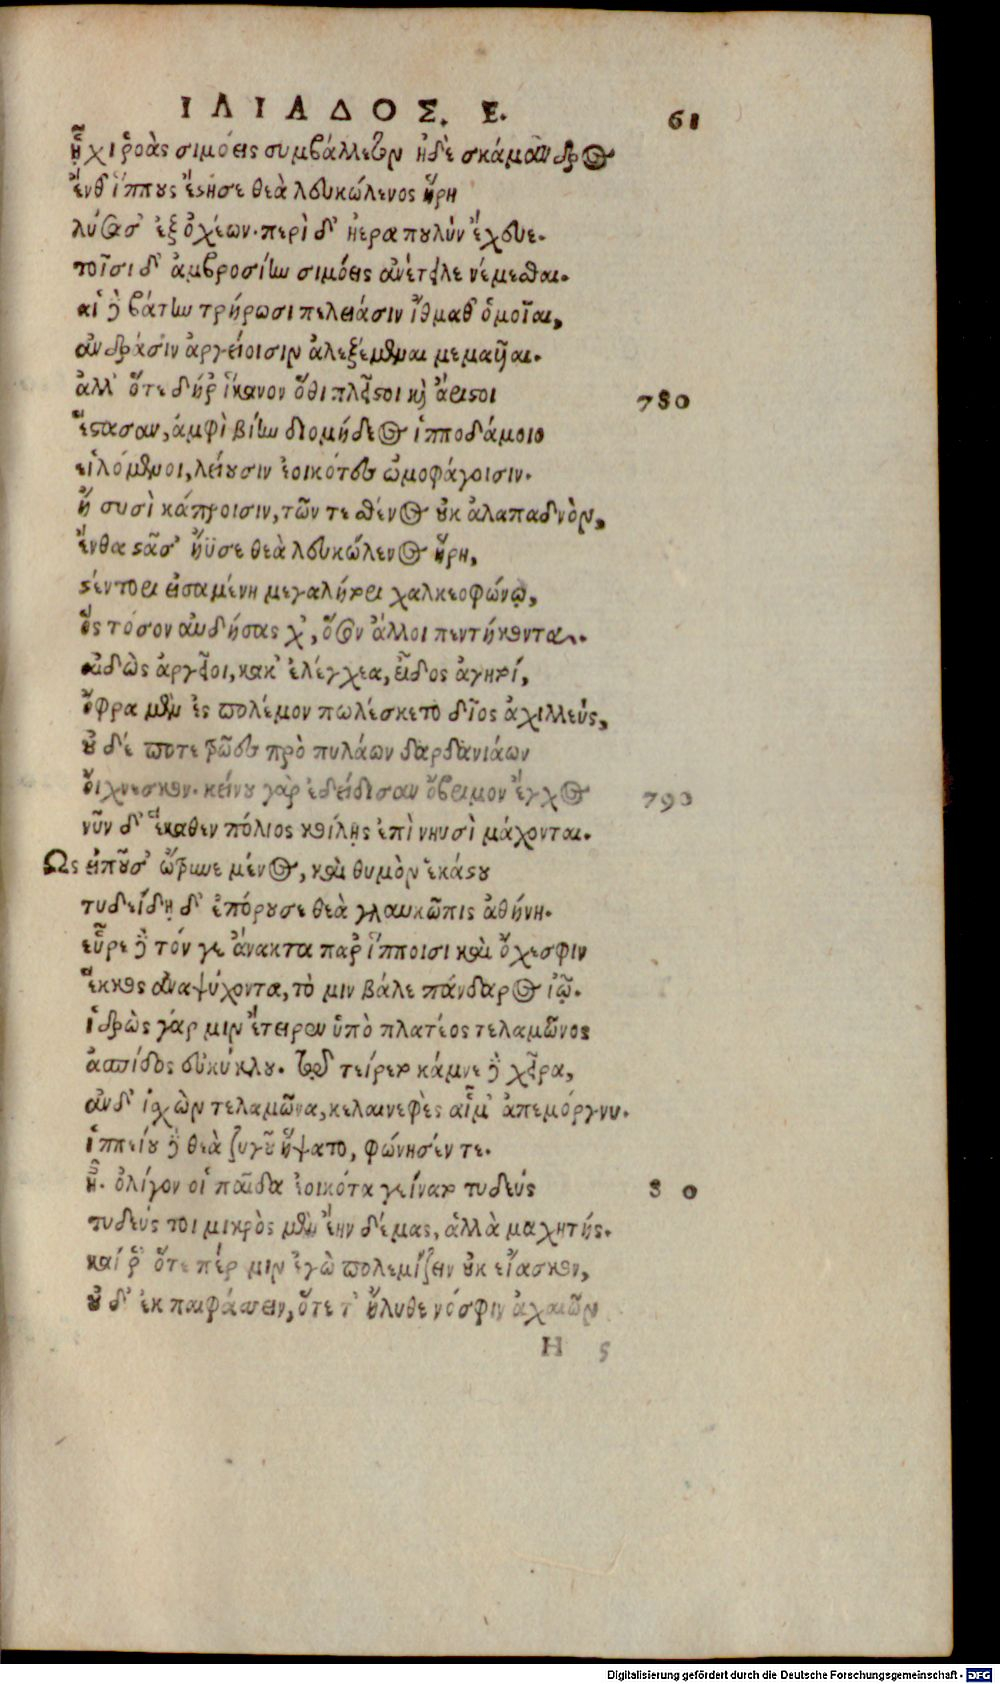 ΙΛΙΑΔΟΣ. Ε. 61
ἧχι ῥοὰς σιμόεις συμβάλλετον ἠδὲ σκάμανδρος
ἔνθ' ἵππους ἔστησε θεὰ λευκώλενος ἥρη
λύσασ' ἐξ ὀχέων. περὶ δ' ἠέρα πουλὺν ἔχευε.
τοῖσι δ' ἀμβροσίην σιμόεις ἀνέτειλε νέμεσθαι.
αἱ δὲ βάτην τρήρωσι πελειάσιν ἴθμαθ' ὁμοῖαι,
ἀνδράσιν ἀργείοισιν ἀλεξέμεναι μεμαυῖαι.
ἀλλ' ὅτε δή ῥ' ἵκανον ὅθι πλεῖστοι καὶ ἄριστοι 780
ἕστασαν, ἀμφὶ βίην διομήδεος ἱπποδάμοιο
εἰλόμενοι, λείουσιν ἐοικότες ὠμοφάγοισιν.
ἢ συσὶ κάπροισιν, τῶν τε σθένος οὐκ ἀλαπαδνὸν,
ἔνθα στᾶσ' ἤϋσε θεὰ λευκώλενος ἥρη,
στέντορι εἰσαμένη μεγαλήτορι χαλκεοφώνῳ,
ὃς τόσον αὐδήσασχ', ὅσον ἄλλοι πεντήκοντα.
αἰδὼς ἀργεῖοι, κακ' ἐλέγχεα, εἶδος ἀγητοί,
ὄφρα μὲν ἐς πολέμον πωλέσκετο δῖος ἀχιλλεύς,
οὐδέ ποτε τρῶες πρὸ πυλάων δαρδανιάων
οἴχνεσκον. κείνου γὰρ ἐδείδισαν ὄβριμον ἔγχος 790
νῦν δ' ἕκαθεν πόλιος κοίλῃς ἐπὶ νηυσὶ μάχονται.
Ως εἰποῦσ' ὤτρυνε μένος, καὶ θυμὸν ἑκάστου
τυδείδῃ δ' ἐπόρουσε θεὰ γλαυκῶπις ἀθήνη.
εὗρε δὲ τόν γε ἄνακτα παρ' ἵπποισι καὶ ὄχεσφιν
ἕλκος ἀναψύχοντα, τὸ μιν βάλε πάνδαρος ἰῷ.
ἱδρὼς γάρ μιν ἔτειρεν ὑπὸ πλατέος τελαμῶνος
ἀσπίδος εὐκύκλου. τῷ τείρετο κάμνε δὲ χεῖρα,
ἂν δ' ἰσχὼν τελαμῶνα, κελαινεφὲς αἷμ' ἀπεμόργνυ.
ἱππείου δὲ θεὰ ζυγοῦ ἥψατο, φώνησέν τε.
ἦ. ὀλίγον οἱ παῖδα ἐοικότα γείνατο τυδεύς 8 0
τυδεύς τοι μικρὸς μὲν ἔην δέμας, ἀλλὰ μαχητής.
καί ῥ' ὅτε πέρ μιν ἐγὼ πολεμίζειν οὐκ εἴασκον,
οὐδ' ἐκπαιφάσσειν, ὅτε τ' ἤλυθε νόσφιν ἀχαιῶν
H 5
Digitalisierung gefördert durch die Deutsche Forschungsgemeinschaft - DFG